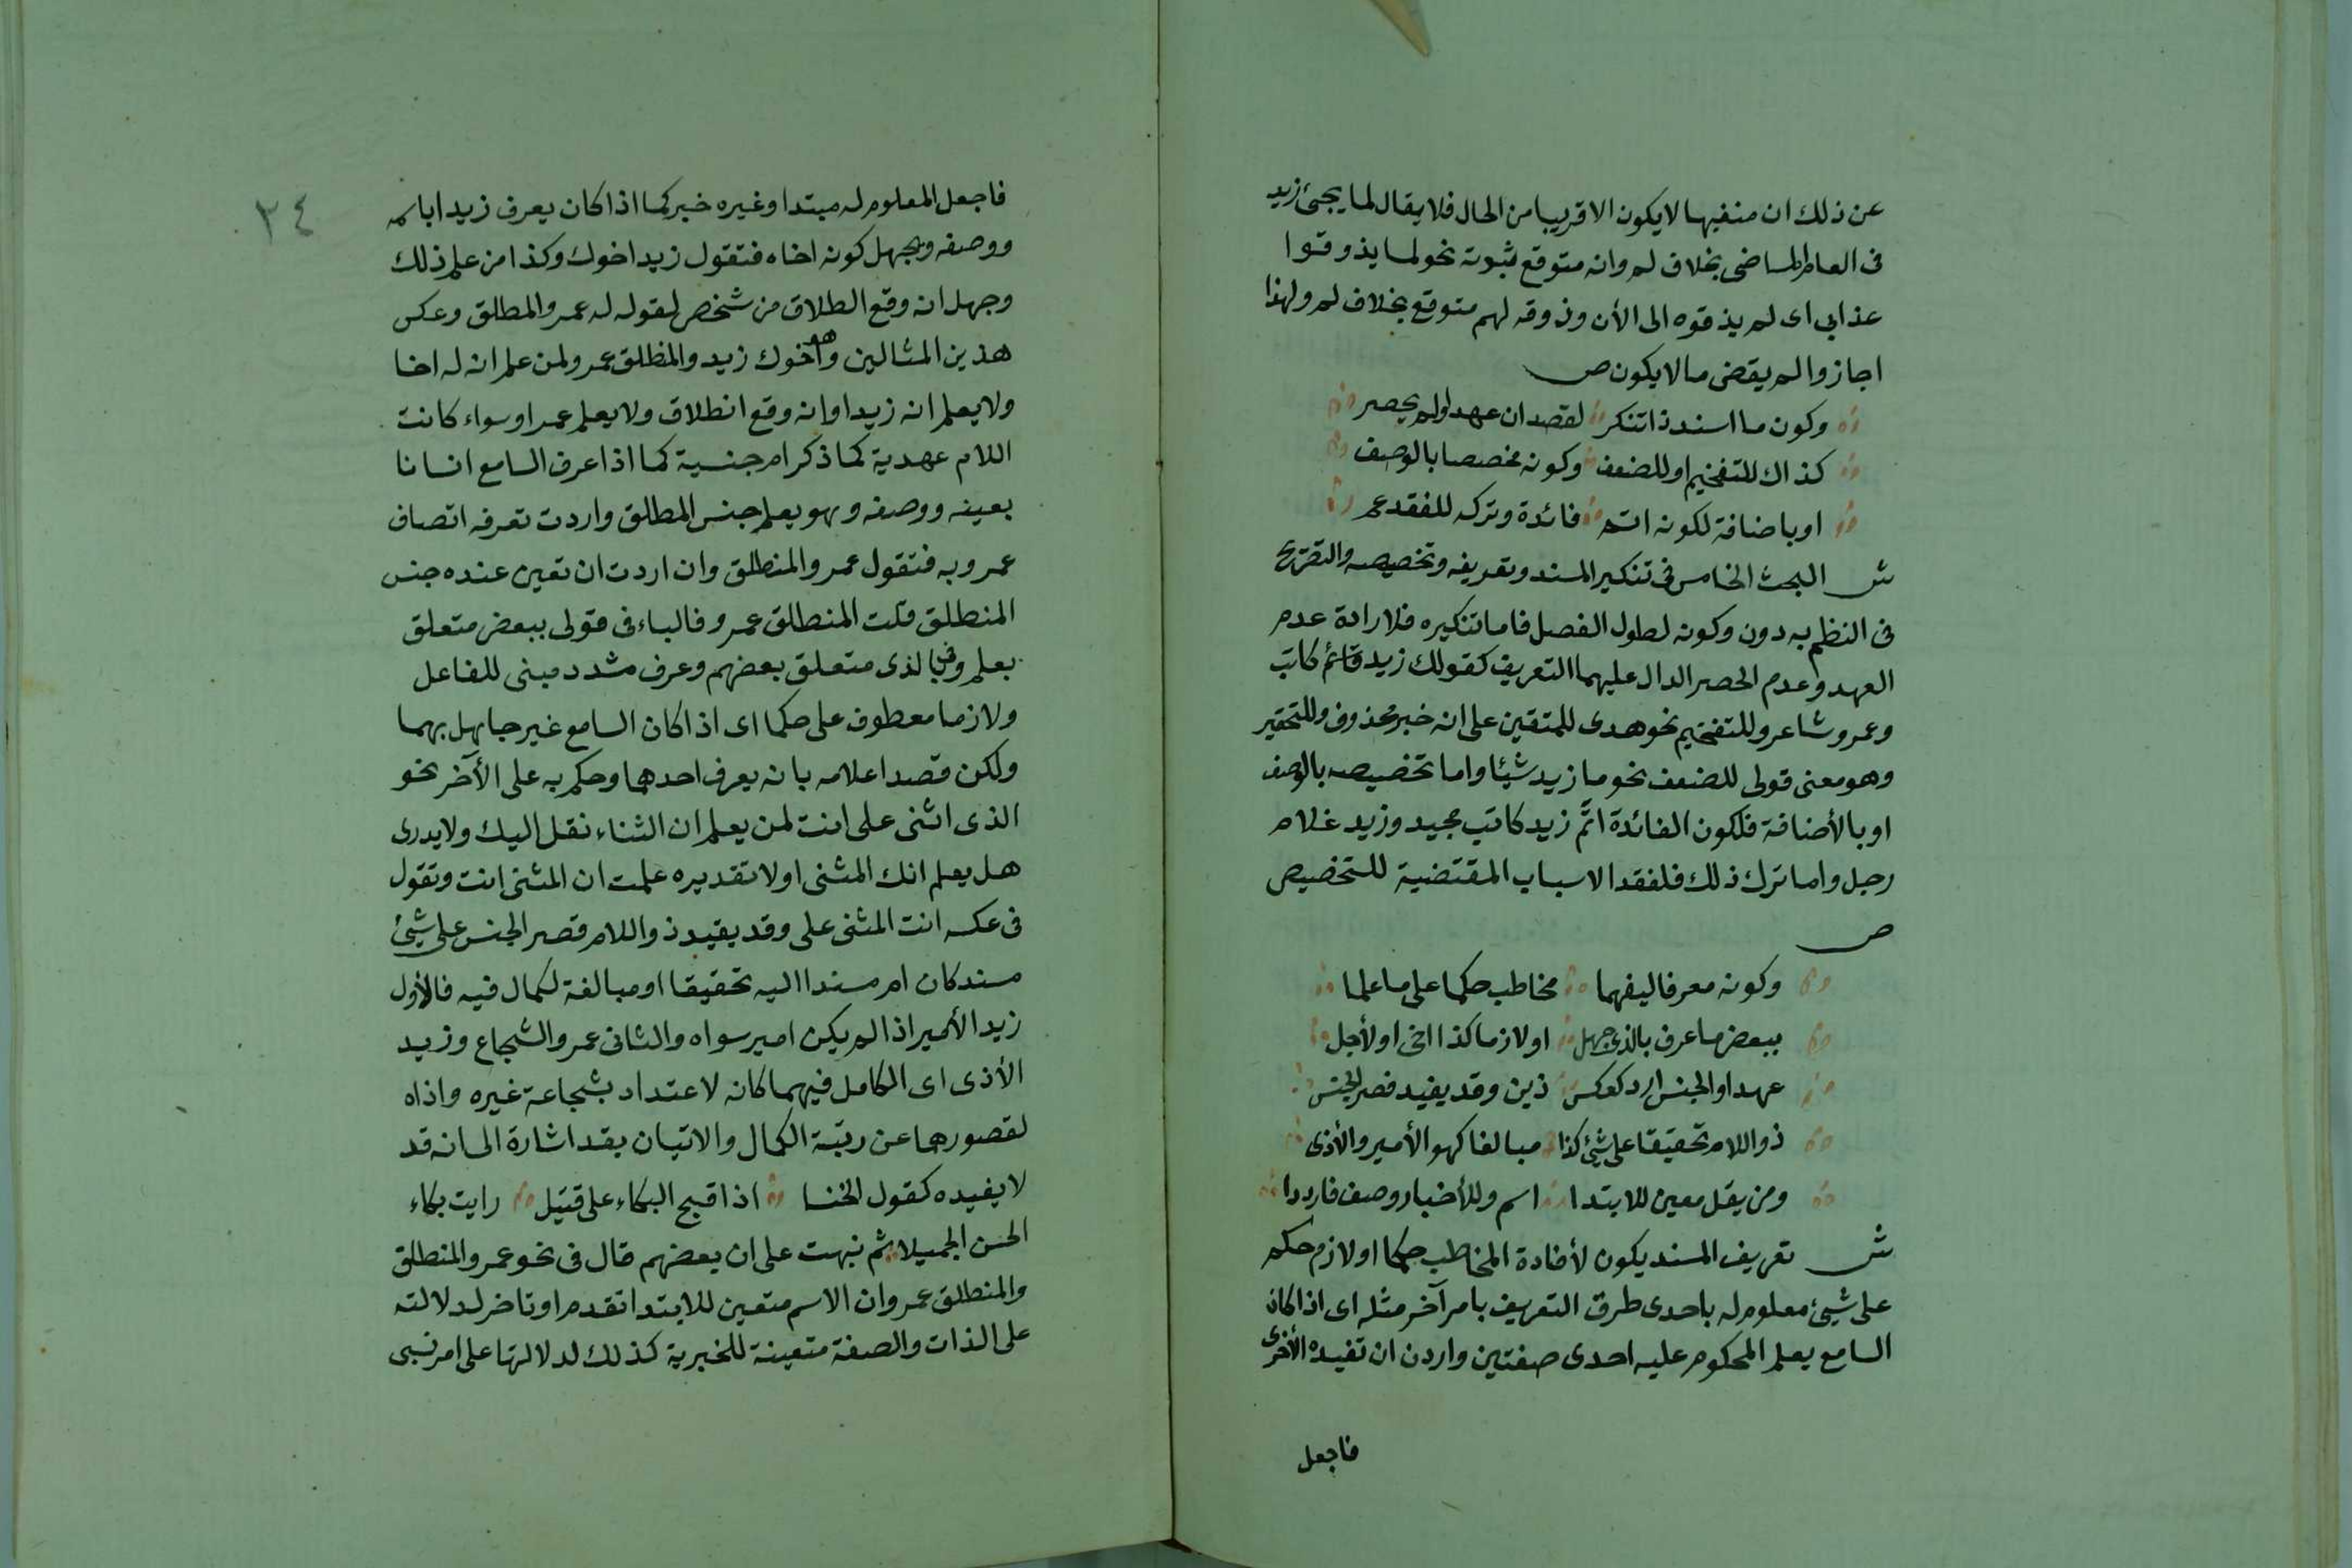 عن ذلك ان منفيها لا يكون الا قريبا من الحال فلا يقال لما يجئ زيد
فى العام الماضى بخلاف لم وانه متوقع ثبوته نحو لما يذوقوا
عذابى اى لم يذقوه الى الأن وذوقه لهم متوقع بخلاف لم ولهذا
اجازوا لم يقضى مالا يكون ص
وكون ما اسند ذا تنكر لقصد ان عهد اولم يحصر
كذاك للتفخيم او للضعف وكونه مخصصا بالوصف
او باضافة لكونه اتم فائدة وتركه للفقد عم
ش البحث الخامس فى تنكير المسند وتعريفه وتخصيصه والتصريح
فى النظم به دون وكونه لطول الفصل فاما تنكيره فلارادة عدم
العهد وعدم الحصر الدال عليهما التعريف كقولك زيد قائم كاتب
وعمرو شاعر وللتفخيم نحو هدى للمتقين على انه خبر محذوف وللتحقير
وهو معنى قولى للضعف نحو ما زيد شيئا واما تخصيصه بالوصف
او بالأضافة فلكون الفائدة اتم زيد كاتب مجيد وزيد غلام
رجل واما ترك ذلك فلفقد الاسباب المقتضية للتخصيص
ص
وكونه معرفا ليفهما مخاطب حكما على ما علما
ببعض ما عرف بالذى جهل او لازما كذا اخى او لأجل
عهد او الجنس ارد كعكس ذين وقد يفيد قصر الجنس
ذو اللام تحقيقا على شئ كذا مبالغا كهو الأمير والأذى
ومن يقل معين للابتدا اسم وللأخبار وصف فارددا
ش تعريف المسند يكون لأفادة المخاطب حكما او لازم حكم
على شئ معلوم له باحدى طرق التعريف بامر آخر مثله اى اذا كان
السامع يعلم المحكوم عليه احدى صفتين واردت ان تفيده الأخرى
فاجعل
٣٤
فاجعل المعلوم له مبتدا وغيره خبر كما اذا كان يعرف زيدا باسمه
ووصفه ويجهل كونه اخاه فتقول زيد اخوك وكذا من علم ذلك
وجهل انه وقع الطلاق من شخص لقوله له عمرو المطلق وعكس
هذين المثالين وهو اخوك زيد والمنطلق عمرو لمن علم ان له اخا
ولا يعلم انه زيد او انه وقع انطلاق ولا يعلم عمرا وسواء كانت
اللام عهدية كما ذكر ام جنسية كما اذا عرف السامع انسانا
بعينه ووصفه وهو يعلم جنس المطلق واردت تعرفه اتصاف
عمرو به فتقول عمرو المنطلق وان اردت ان تعين عنده جنس
المنطلق قلت المنطلق عمرو فالباء فى قولى ببعض متعلق
بعلم وفى بالذى متعلق بعضهم وعرف مشدد مبنى للفاعل
ولازما معطوف على حكما اى اذا كان السامع غير جاهل بهما
ولكن قصد اعلامه بانه يعرف احدهما وحكم به على الأخر نحو
الذى اثنى على انت لمن يعلم ان الثناء نقل اليك ولا يدرى
هل يعلم انك المثنى او لا تقديره علمت ان المثنى انت وتقول
فى عكسه انت المثنى على وقد يفيد ذو اللام قصر الجنس على شئ
مسند كان ام مسندا اليه تحقيقا او مبالغة لكمال فيه فالأول
زيد الأمير اذا لم يكن امير سواه والثانى عمرو الشجاع وزيد
الأذى اى الكامل فيهما كانه لا عتداد بشجاعة غيره واذاه
لقصورهما عن رتبة الكمال والاتيان بقد اشارة الى انه قد
لا يفيده كقول الخنسا اذا قبح البكاء على قتيل رايت بكاء
الحسن الجميلا ثم نبهت على ان بعضهم قال فى نحو عمرو المنطلق
والمنطلق عمرو ان الاسم متعين للابتدا تقدم او تاخر لدلالته
على الذات والصفة متعينة للخبرية كذلك لدلالتها على امر نسبى